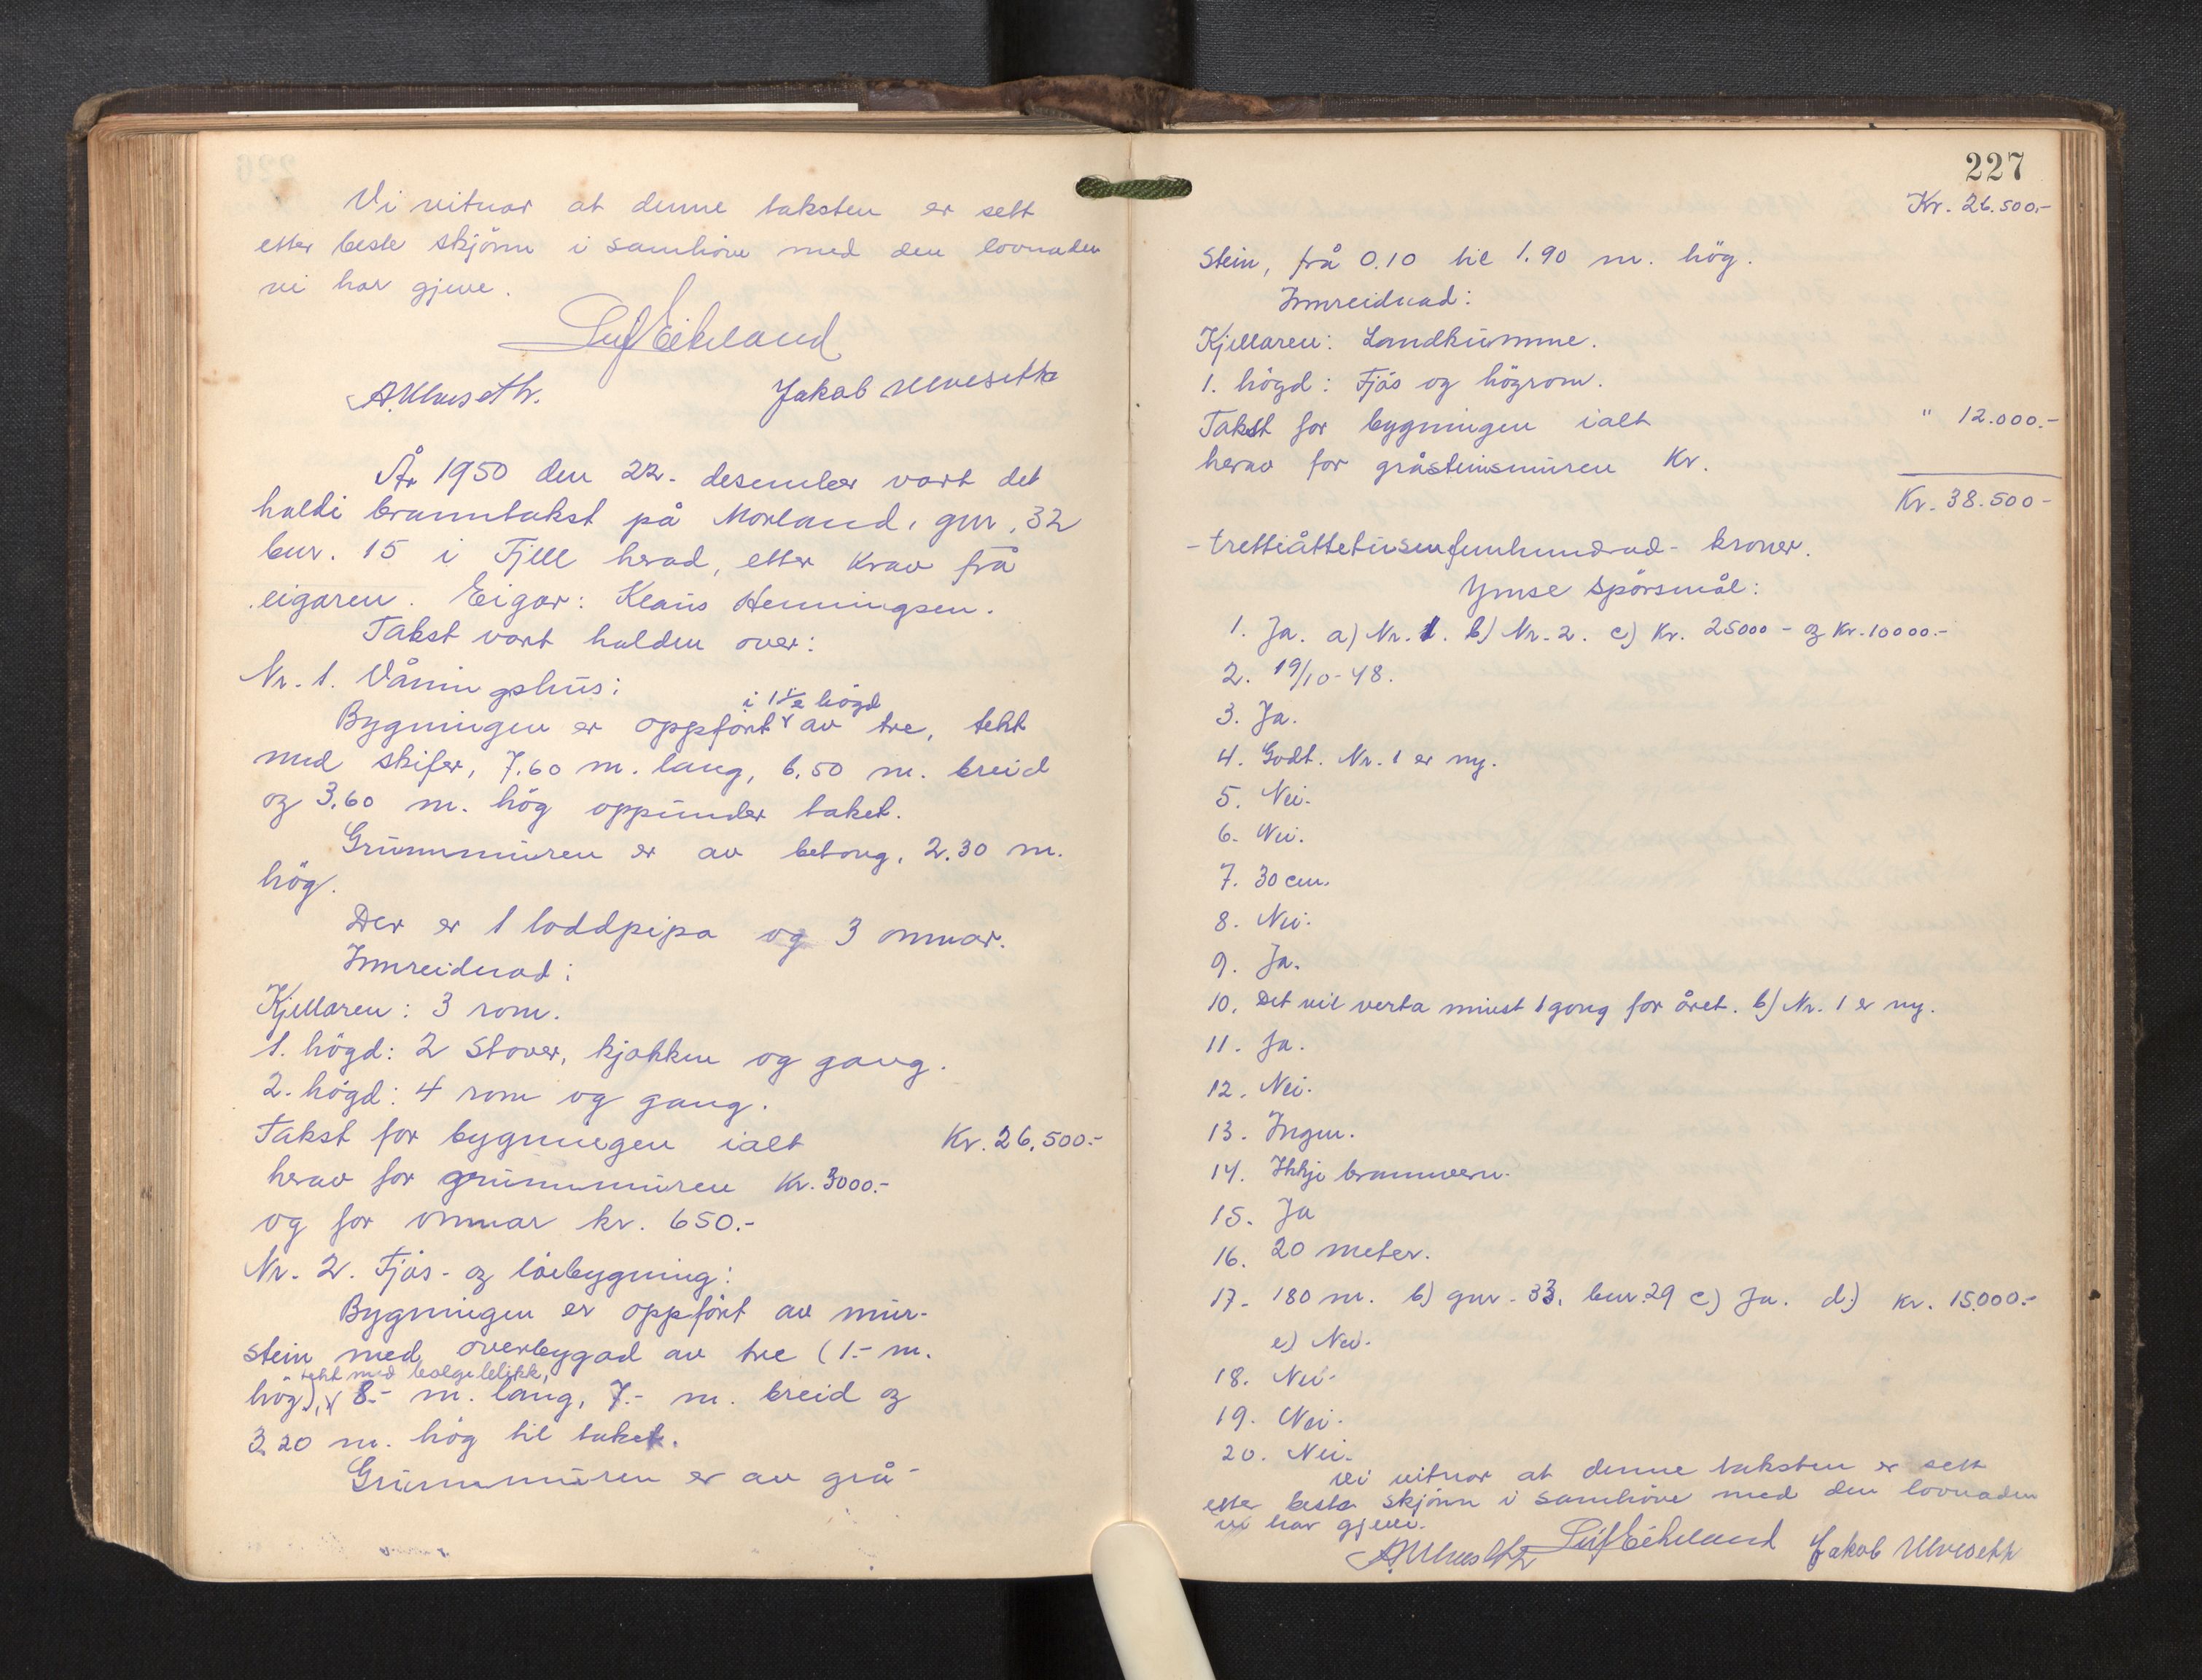 Vi vitnar at denne taksten er sett
etter beste skjönn i samhöve med den lovnaden
vi har gjeve.
Leif Eikeland
A. Ulveseth. Jakob Ulvesetth
År 1950 den 22. desember vart det
haldi branntakst på Morland, gnr. 32
bnr. 15 i Fjell herad, etter krav frå
eigaren. Eigar: Klaus Henningsen.
Takst vart halden over:
Nr. 1. Våningshus:
i 1½ högd
Bygningen er oppfört av tre, tekt
med skifer, 7.60 m. lang, 6.50 m. breid
og 3.60 m. hög oppunder taket.
Grunnmuren er av betong, 2.30 m.
hög.
Der er 1 loddpipa og 3 omnar.
Innreidnad:
Kjellaren: 3 rom.
1. högd: 2 stover, kjökken og gang.
2. högd: 4 rom og gang.
Takst for bygningen ialt Kr. 26.500.-
herav for grunnmuren Kr. 3000.-
og for omnar kr. 650.-
Nr. 2. Fjös- og löebygning:
Bygningen er oppfört av mur-
stein med overbygad av tre (1.- m.
tekt med bölgeblikk,
hög), 8.- m. lang, 7.- m. breid og
3.20 m. hög til taket.
Grunnmuren er av grå-
227
Kr. 26.500.-
stein, frå 0.10 til 1.90 m. hög.
Innreidnad:
Kjellaren: Landkumme.
1. högd: Fjös og högrom.
Takst for bygningen ialt " 12.000.-
herav for gråsteinsmuren Kr.
Kr. 38.500-
- trettiåttetusenfemhundrad- kroner.
Ymse spörsmål:
1. Ja. a) Nr. 1. b) Nr. 2. c) Kr. 25000 - og Kr. 10000.-
2. 19/10-48.
3. Ja.
4. Godt. Nr. 1 er ny.
5. Nei.
6. Nei.
7. 30 cm.
8. Nei.
9. Ja.
10. Det vil verta minst 1 gong for året. b) Nr. 1 er ny.
11. Ja.
12. Nei.
13. Ingen.
14. Ikkje brannvern.
15. Ja
16. 20 meter.
17. 180 m. b) gnr. 33, bnr. 29 c) Ja. d) Kr. 15.000.-
e) Nei.
18. Nei.
19. Nei.
20. Nei.
Vi vitnar at denne taksten er sett
etter beste skjönn i samhöve med den lovnaden
vi har gjeve.
A. Ulveseth Leif Eikeland Jakob Ulvesetth